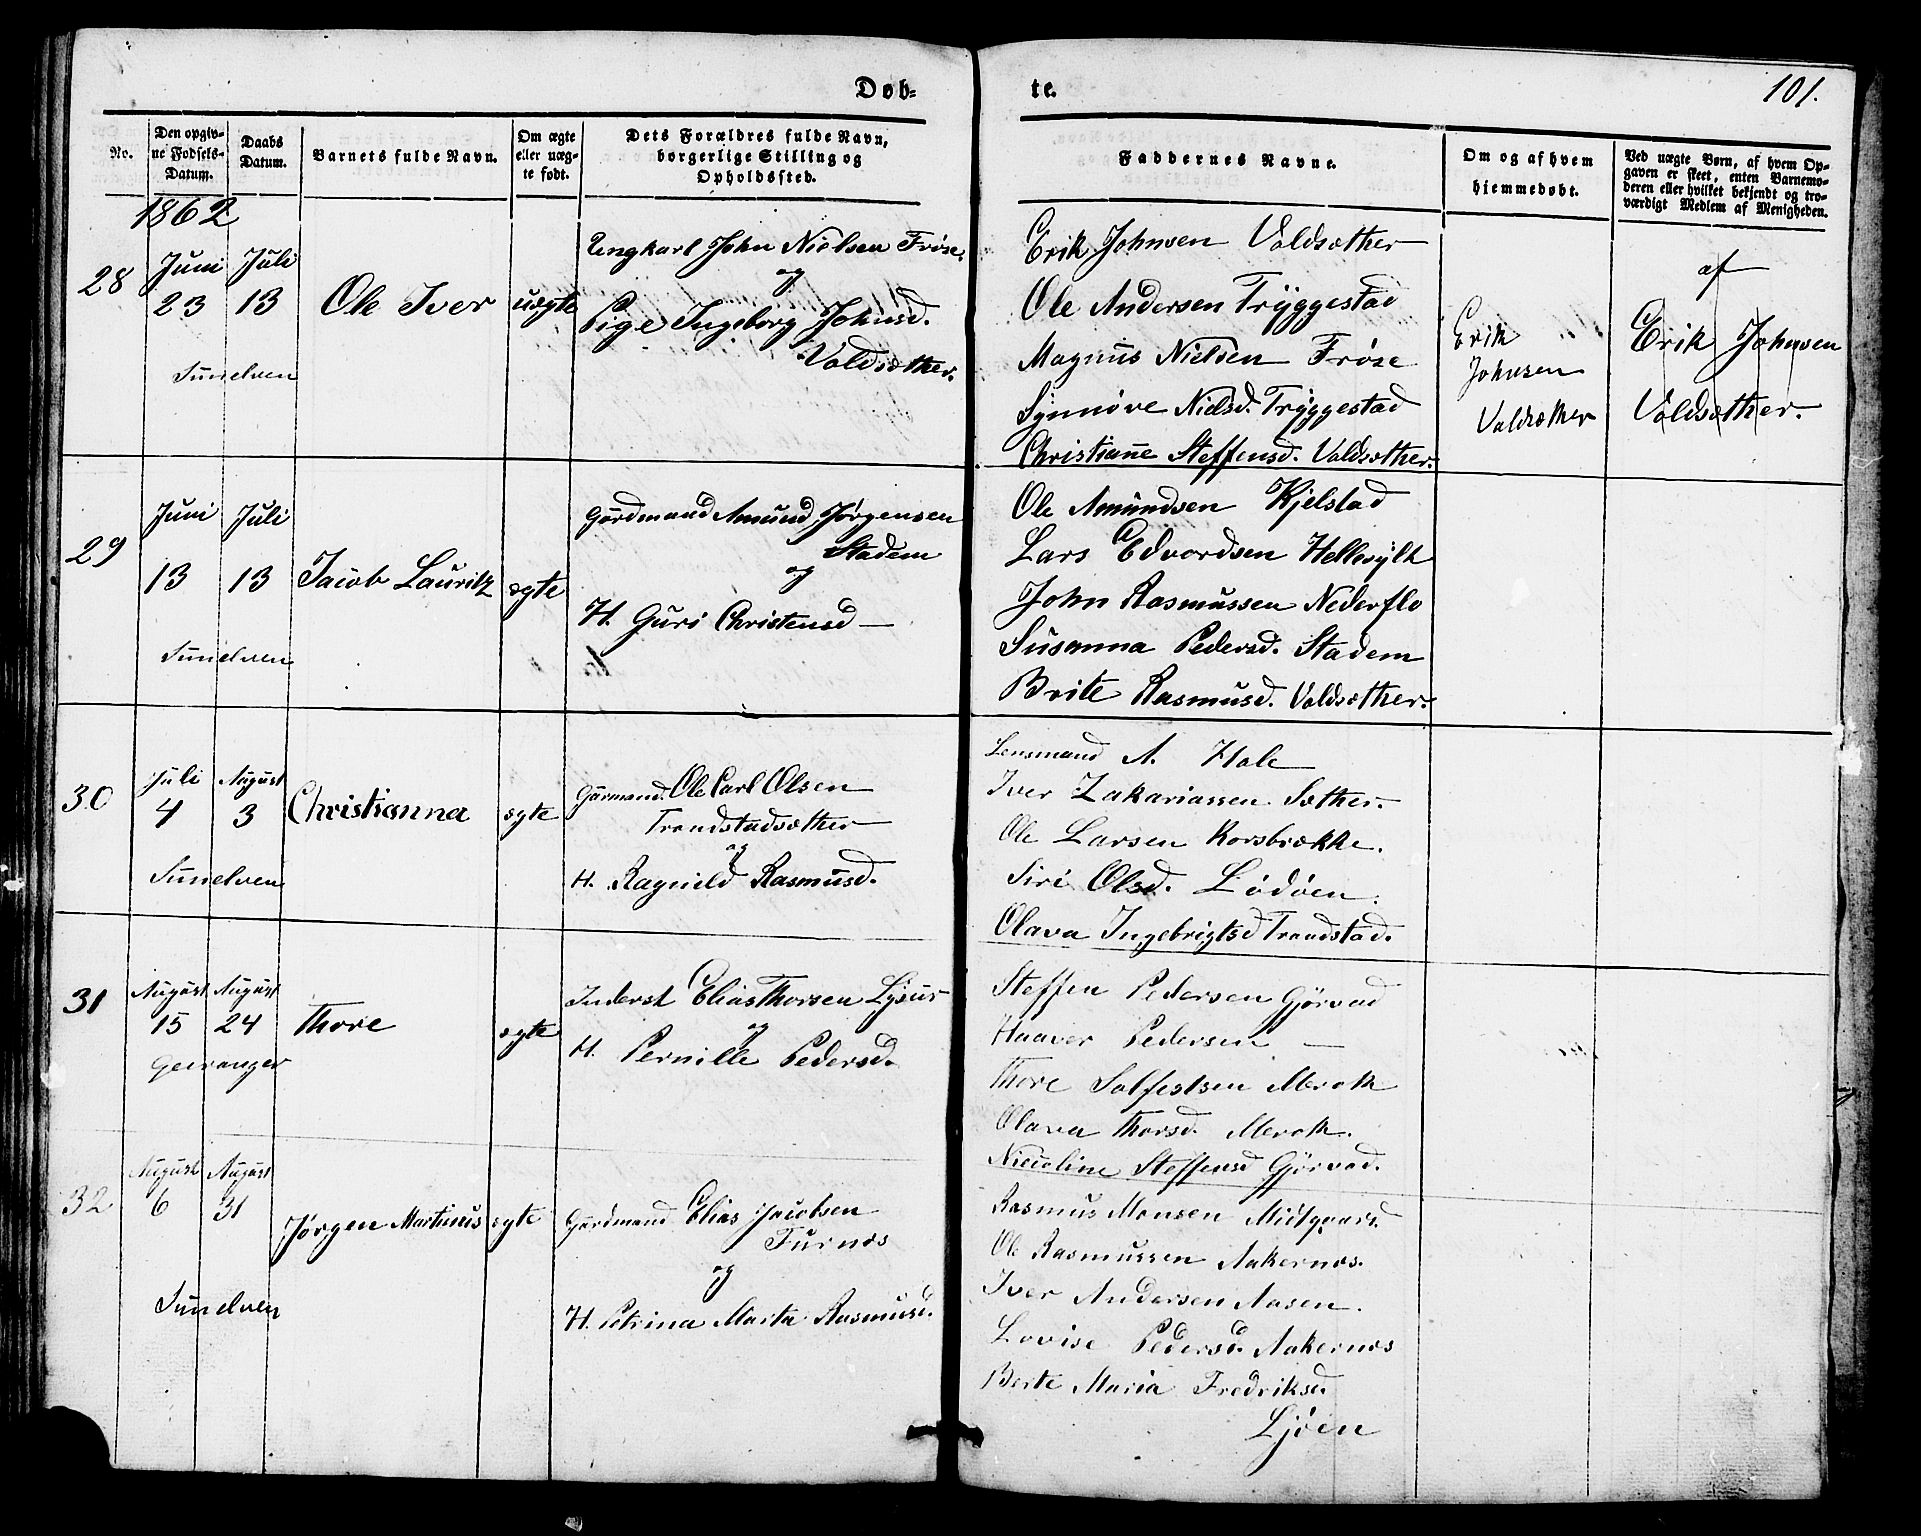 Døb-
te.
101.
No.
Den opgiv-
ne Fødsels-
Datum.
Daabs
Datum.
Barnets fulde Navn.
Om ægte
eller uæg-
te født.
Dets Forældres fulde Navn,
borgerlige Stilling og
Opholdssted.
Faddernes Navne.
Om og af hvem
hjemmedøbt.
Ved uægte Børn, af hvem Op-
gaven er skeet, enten Barnemo-
deren eller hvilket bekjendt og tro-
værdigt Medlem af Menigheden.
1862
28
Juni
23
Juli
13
Sunelven
Ole Iver
uægte
Ungkarl John Nielsen Frøse
og
Pige Ingeborg Johnsd.
Voldsæther.
Erik Johnsen Voldsæther
Ole Andersen Tryggestad
Magnus Nielsen Frøse
Synnøve Nielsd. Tryggestad
Christianne Steffensd. Voldsæther.
Erik
Johnsen
Voldsæther
af
Erik Johnsen
Voldsæther.
29
Juni
13
Juli
13
Sunelven
Jacob Lauritz
ægte
Gårdmand Amund Jørgensen
Stadem
og
H. Guri Christensd —
Ole Amundsen Kjelstad
Lars Edvardsen Hellesylt
John Rasmussen Nederflo
Susanna Pedersd. Stadem
Brite Rasmusd. Voldsæther.
30
Juli
4
August
3
Sunelven
Christianna
ægte
Gårmand. Ole Carl Olsen
Trandstadsæther
og
H. Ragnild Rasmusd.
Lensmand A. Hole
Iver Zakariassen Sæther.
Ole Larsen Korsbrække.
Siri Olsd. Lødøen.
Olava Ingebrigtsd Trandstad.
31
August
15
August
24
Geiranger
Thore
ægte
Inderst Elias Thorsen
og
H. Pernille Pedersd.
Steffen Pedersen Gjørvad
Haaver Pedersen —
Thore Salfestsen Merok
Olava Thorsd. Merok.
Nicoline Steffensd Gjørvad.
32
August
6
August
31
Sunelven
Jørgen Martinus
ægte
Gårdmand Elias Jacobsen
Furnæs
og
H. Petrina Marta Rasmusd.
Rasmus Monsen Midtgaard.
Ole Rasmussen Aakernæs.
Iver Andersen Aasen.
Lovise Pedersd. Aakernæs
Berte Maria Fredriksd.
Ljøen